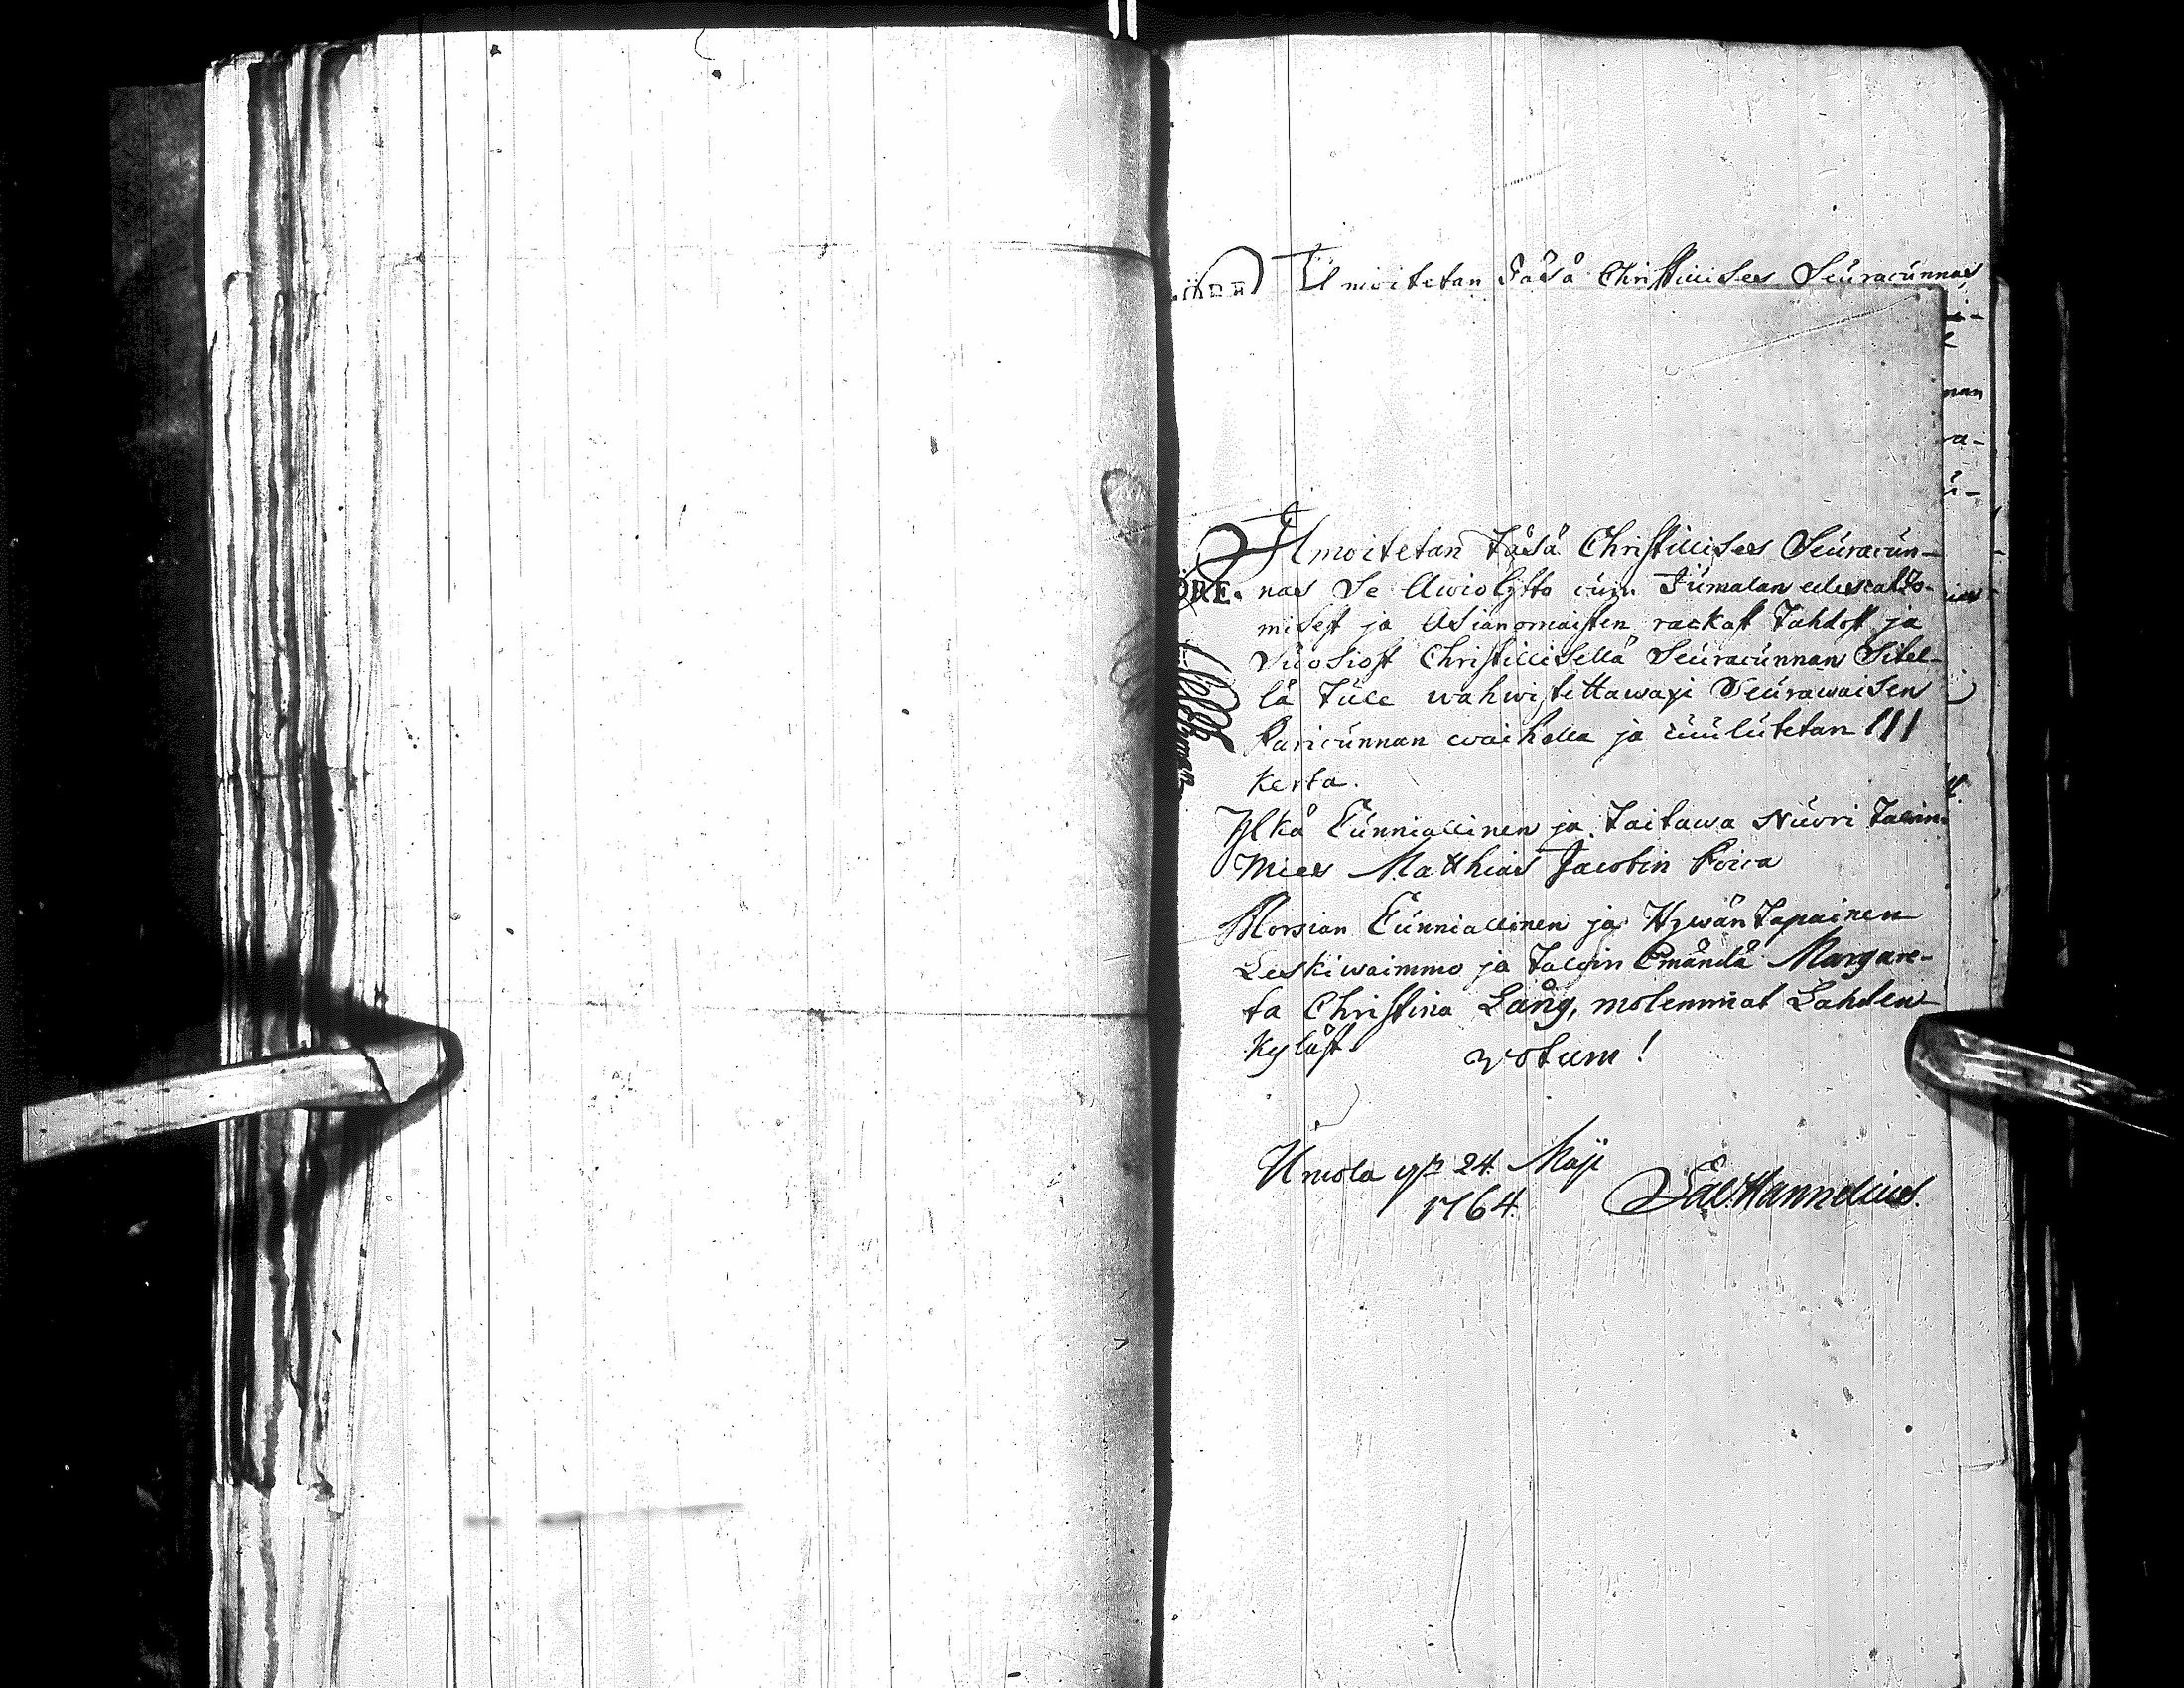 Ilmoitetan Tåsä Christillises Seuracunnas
Ilmoitetan tåsä Christillises Seuracun-
ÖRE. nas Se Awiolijtto cuin Jumalan edescatzo-
misest ja Asianomaisten rackast tahdost ja
Suosiost Christillisellä Seuracunnan Sitel-
lä tule wahwistettawaxi Seurawaisen
Paricunnan waihella ja cuulutetan III
kerta.
Ylkå Cunniallinen ja taitawa Nuori Talon
Mies Matthias Jacobin Poica
Morsian Cunniallinen ja Hywäntapainen
Leskiwaimmo ja talon Emändå Margare-
ta Christina Lång, molemmat Lahden
Kylåst votum!
Urnola 24 Maji
1764. Hannelius.